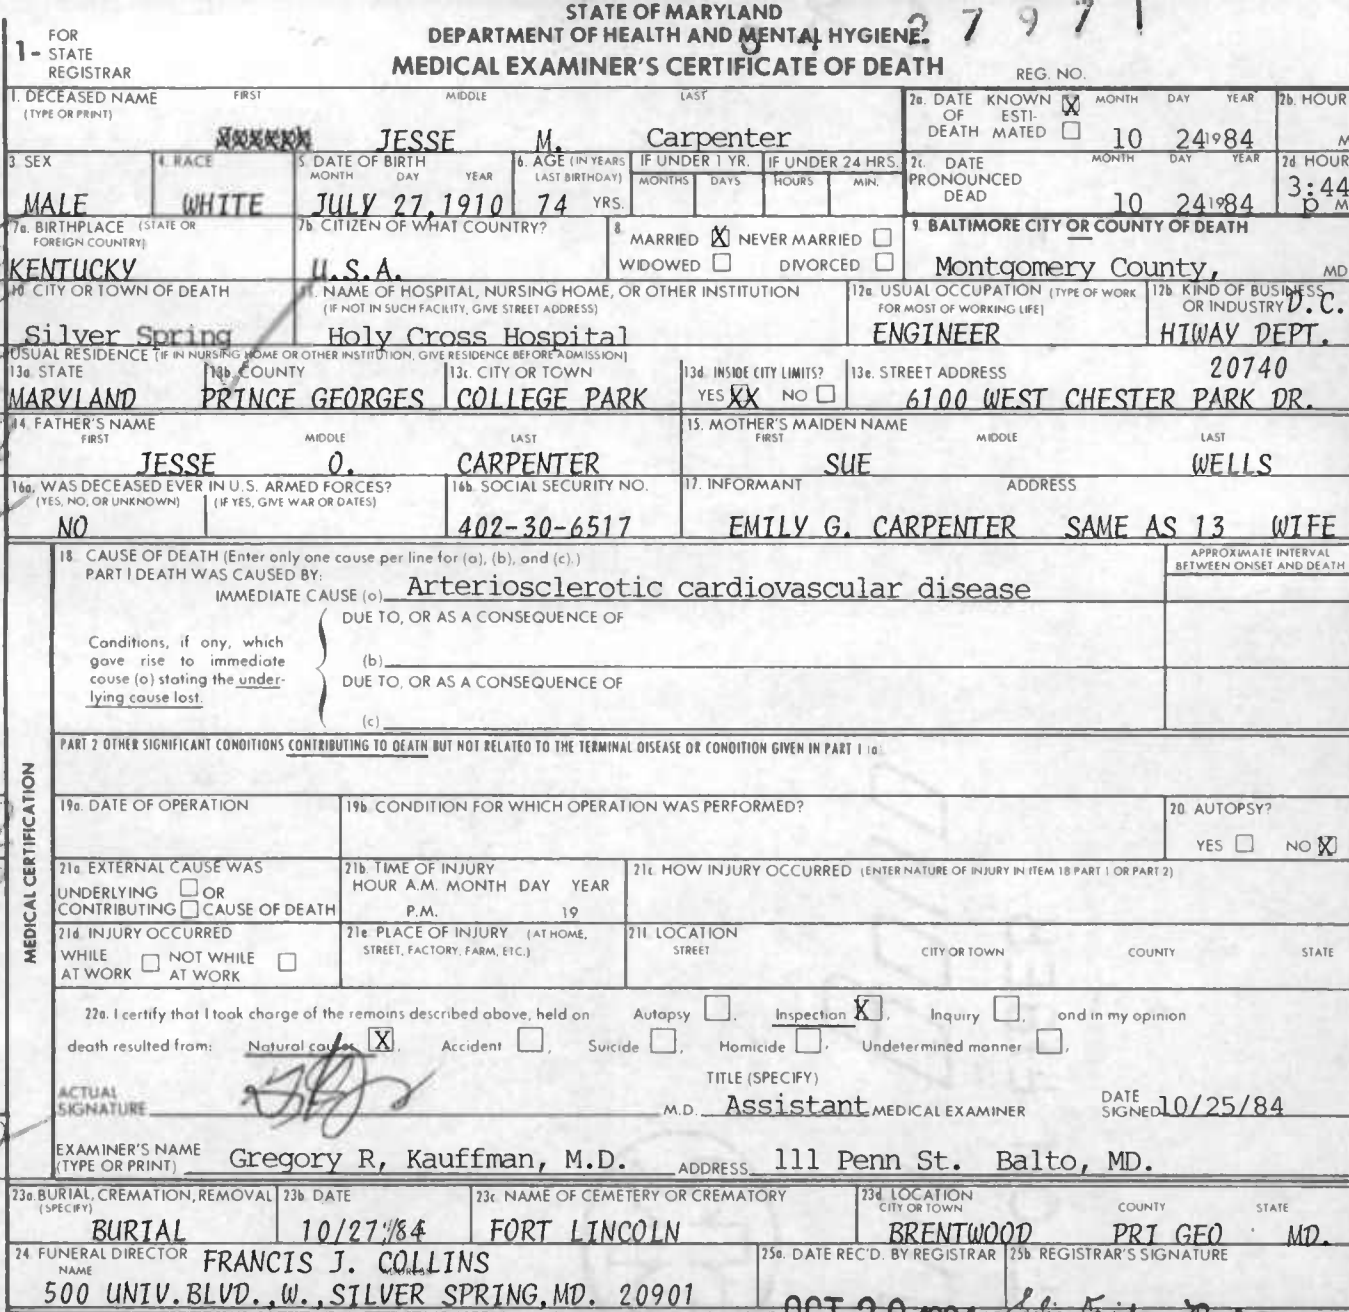 STATE OF MARYLAND
DEPARTMENT OF HEALTH AND MENTAL HYGIENE
27971
MEDICAL EXAMINER'S CERTIFICATE OF DEATH
1- FOR STATE REGISTRAR
REG. NO.
1. DECEASED NAME (TYPE OR PRINT) FIRST MIDDLE LAST
JESSE M. Carpenter
2a. DATE OF DEATH KNOWN X ESTIMATED MONTH DAY YEAR
10 24 1984
2b. HOUR M
3 SEX
MALE
4. RACE
WHITE
5 DATE OF BIRTH MONTH DAY YEAR
JULY 27, 1910
6. AGE (IN YEARS LAST BIRTHDAY)
74 YRS.
IF UNDER 1 YR. MONTHS DAYS
IF UNDER 24 HRS. HOURS MIN.
2c. DATE PRONOUNCED DEAD MONTH DAY YEAR
10 24 1984
2d HOUR
3:44 P M
7a. BIRTHPLACE (STATE OR FOREIGN COUNTRY)
KENTUCKY
7b CITIZEN OF WHAT COUNTRY?
U.S.A.
8 MARRIED X NEVER MARRIED
WIDOWED DIVORCED
9 BALTIMORE CITY OR COUNTY OF DEATH
Montgomery County, MD
10 CITY OR TOWN OF DEATH
Silver Spring
11. NAME OF HOSPITAL, NURSING HOME, OR OTHER INSTITUTION
(IF NOT IN SUCH FACILITY, GIVE STREET ADDRESS)
Holy Cross Hospital
12a USUAL OCCUPATION (TYPE OF WORK FOR MOST OF WORKING LIFE)
ENGINEER
12b KIND OF BUSINESS OR INDUSTRY D.C.
HIWAY DEPT.
USUAL RESIDENCE (IF IN NURSING HOME OR OTHER INSTITUTION, GIVE RESIDENCE BEFORE ADMISSION)
13a STATE
MARYLAND
13b COUNTY
PRINCE GEORGES
13c. CITY OR TOWN
COLLEGE PARK
13d INSIDE CITY LIMITS?
YES XX NO
13e. STREET ADDRESS 20740
6100 WEST CHESTER PARK DR.
14. FATHER'S NAME FIRST MIDDLE LAST
JESSE O. CARPENTER
15. MOTHER'S MAIDEN NAME FIRST MIDDLE LAST
SUE WELLS
16a. WAS DECEASED EVER IN U.S. ARMED FORCES?
(YES, NO, OR UNKNOWN) (IF YES, GIVE WAR OR DATES)
NO
16b. SOCIAL SECURITY NO.
402-30-6517
17. INFORMANT ADDRESS
EMILY G. CARPENTER SAME AS 13 WIFE
MEDICAL CERTIFICATION
18 CAUSE OF DEATH (Enter only one cause per line for (a), (b), and (c).)
APPROXIMATE INTERVAL BETWEEN ONSET AND DEATH
PART I DEATH WAS CAUSED BY:
IMMEDIATE CAUSE (a) Arteriosclerotic cardiovascular disease
DUE TO, OR AS A CONSEQUENCE OF
Conditions, if any, which gave rise to immediate cause (a) stating the underlying cause last.
(b)
DUE TO, OR AS A CONSEQUENCE OF
(c)
PART 2 OTHER SIGNIFICANT CONDITIONS CONTRIBUTING TO DEATH BUT NOT RELATED TO THE TERMINAL DISEASE OR CONDITION GIVEN IN PART 1 (a)
19a. DATE OF OPERATION
19b CONDITION FOR WHICH OPERATION WAS PERFORMED?
20 AUTOPSY?
YES NO X
21a EXTERNAL CAUSE WAS
UNDERLYING OR
CONTRIBUTING CAUSE OF DEATH
21b. TIME OF INJURY
HOUR A.M. MONTH DAY YEAR
P.M. 19
21c. HOW INJURY OCCURRED (ENTER NATURE OF INJURY IN ITEM 18 PART 1 OR PART 2)
21d INJURY OCCURRED
WHILE AT WORK NOT WHILE AT WORK
21e PLACE OF INJURY (AT HOME, STREET, FACTORY, FARM, ETC.)
21f. LOCATION
STREET CITY OR TOWN COUNTY STATE
22a. I certify that I took charge of the remains described above, held on Autopsy, Inspection X, Inquiry, and in my opinion
death resulted from: Natural causes X, Accident, Suicide, Homicide, Undetermined manner,
ACTUAL SIGNATURE
TITLE (SPECIFY)
M.D. Assistant MEDICAL EXAMINER
DATE SIGNED 10/25/84
EXAMINER'S NAME (TYPE OR PRINT) Gregory R, Kauffman, M.D. ADDRESS 111 Penn St. Balto, MD.
23a. BURIAL, CREMATION, REMOVAL (SPECIFY)
BURIAL
23b DATE
10/27/84
23c NAME OF CEMETERY OR CREMATORY
FORT LINCOLN
23d LOCATION CITY OR TOWN COUNTY STATE
BRENTWOOD PRI GEO MD.
24 FUNERAL DIRECTOR NAME FRANCIS J. COLLINS
ADDRESS
500 UNIV. BLVD., W., SILVER SPRING, MD. 20901
25a. DATE REC'D. BY REGISTRAR
OCT
25b. REGISTRAR'S SIGNATURE